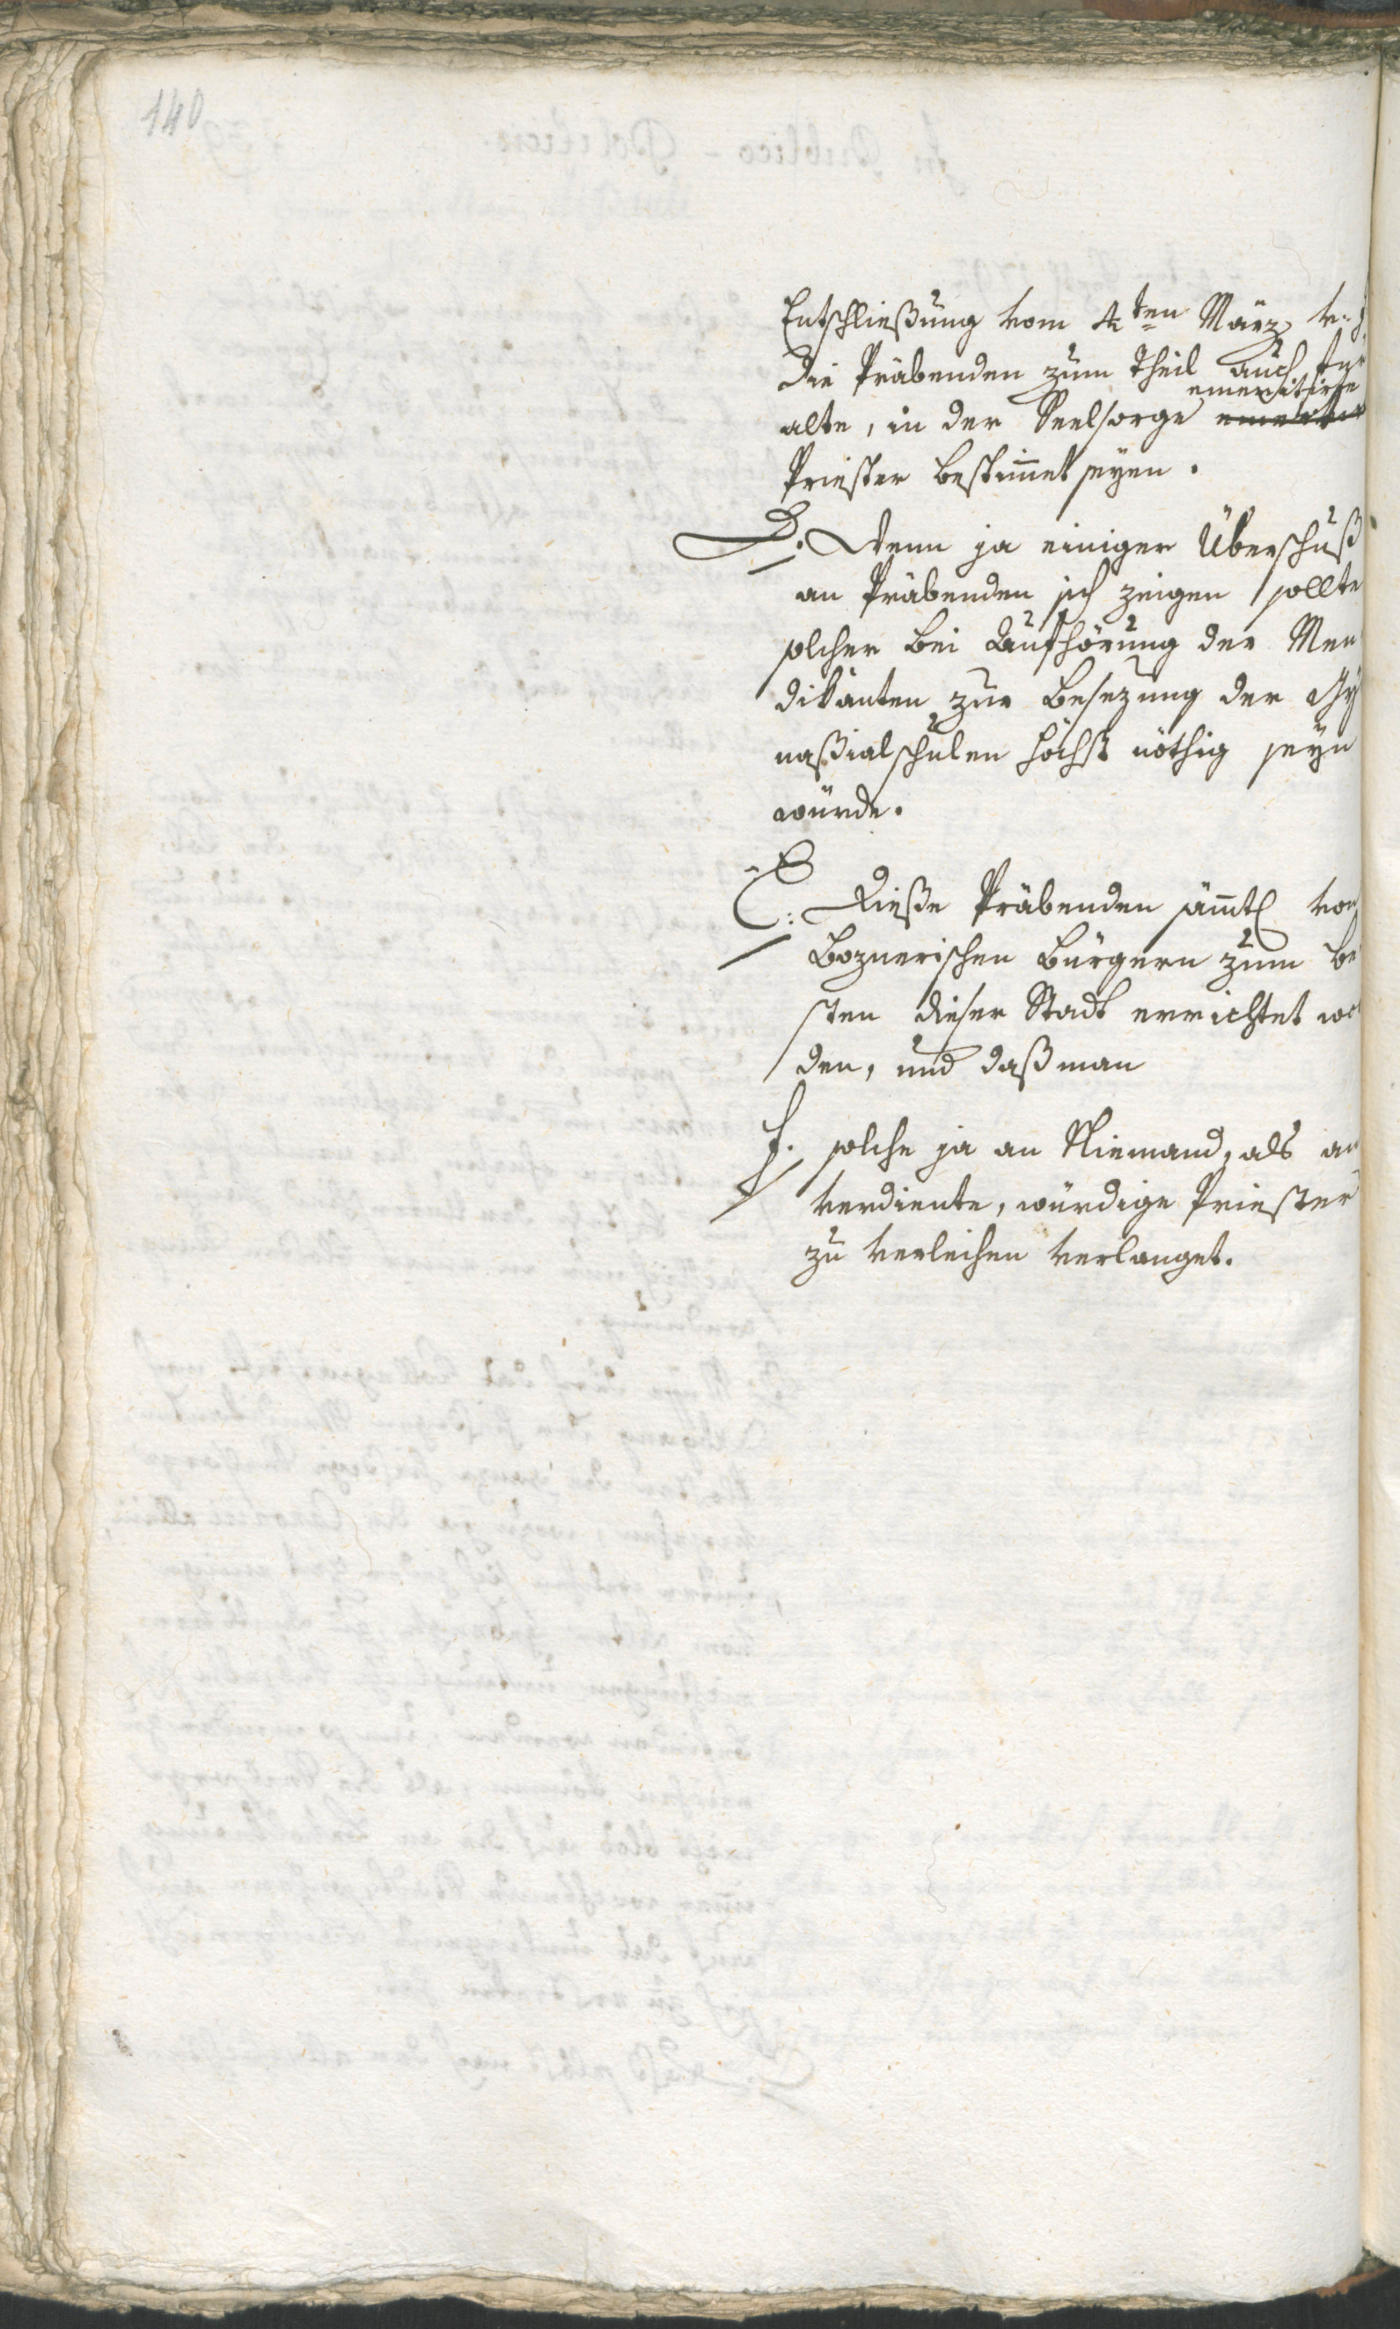 140
Entschließung vom 4ten März v: J.
die Präbenden zum Theil auch für
emeritirte
alte, in der Seelsorge
Priester bestimmet seyen.
D. Wenn ja einiger Überschuß
an Präbenden sich zeigen sollte
solcher bei Aufhörung der Men
dikanten zur Besezung der Gy
naßialschulen höchst nöthig seyn
würde.
E: Dieße Präbenden sämmtl von
Boznerischen Bürgern zum be
sten dieser Stadt errichtet wor
den, und daß man
f. solche ja an Niemand, als an
verdiente, würdige Priester
zu verleihen verlanget.